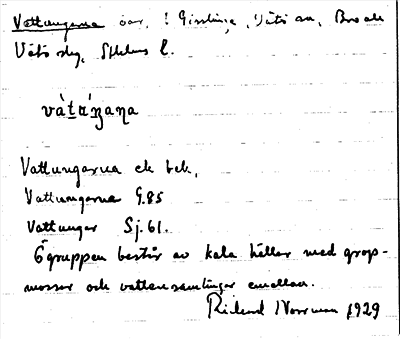 Vattungarna öar, i Gisslinge, Vätö sn, Bro och
Vätö slg, Sthlms l.
và`táŋaɳa
Vattungarna ek bek.
Vattungarna G.85
Vattungar Sj.61.
Ögruppen består av kala hällar med grop-
mossar och vattensamlingar emellan.
Rickard Norrman 1929